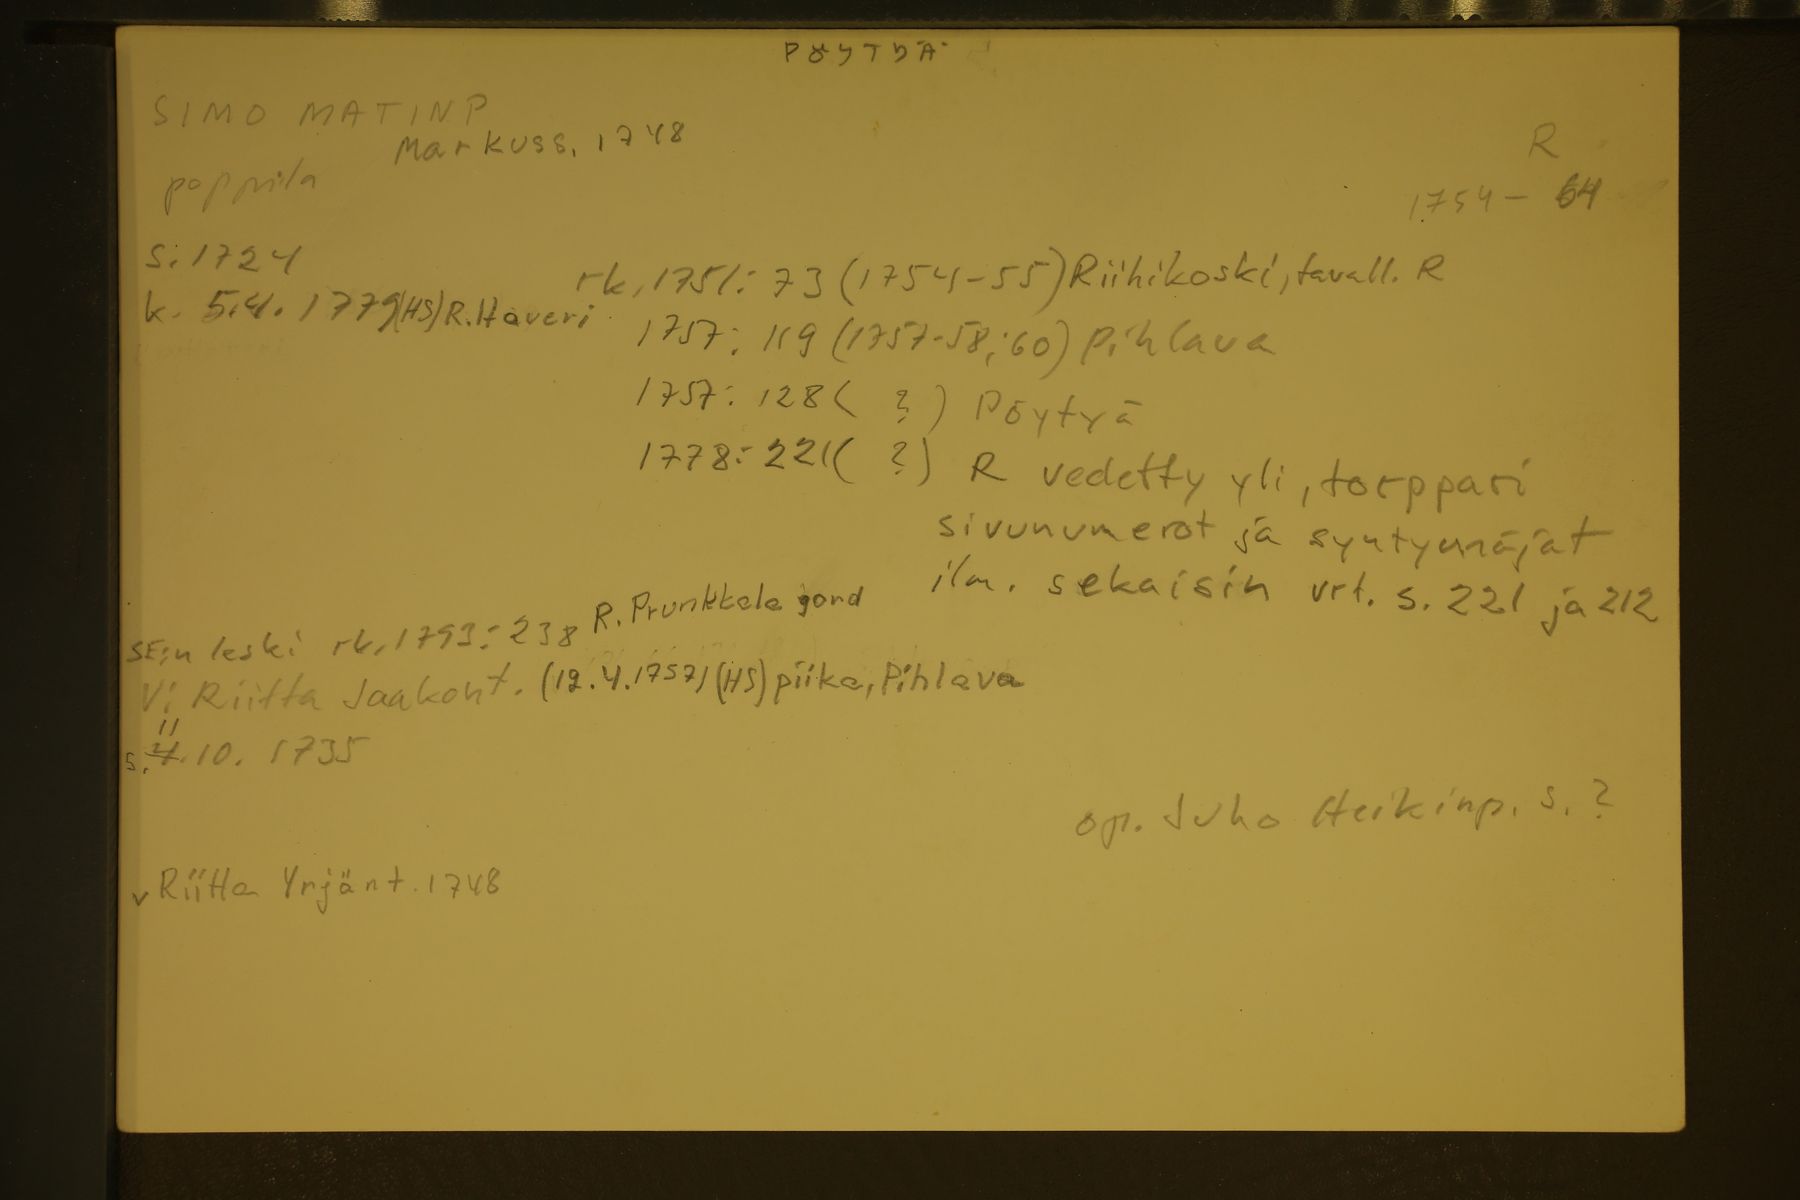 PÖYTYÄ
SIMO MATINP
Markuss. 1748
R
1754 - 64
s. 1724
rk. 1751: 73 (1754-55) Riihikoski, tavall. R
k. 5.4. 1779 (HS) R. Haveri
1757: 119 (1757-58; 60) Pihlava
1757: 128 ( ? ) Pöytyä
1778: 221 ( ? ) R vedetty yli, torppari
sivunumerot ja syntymäajat
ilm. sekaisin vrt. s. 221 ja 212
SE:n leski rk. 1793: 238 R. Prunkkala jord
VI Riitta Jaakont. (12.4.1757) (HS) piika, Pihlava
11
s. 4.10. 1735
op. Juho Heikinp. s. ?
v Riitta Yrjänt. 1748